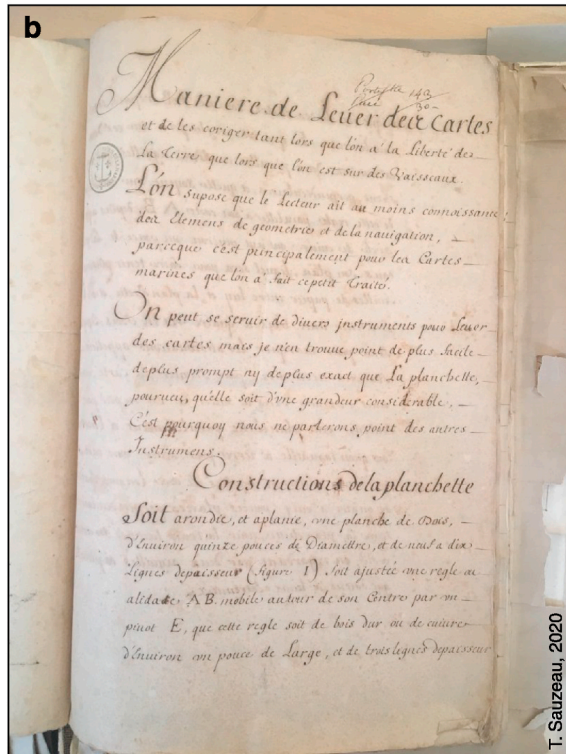 b
Portefle 142
30
Maniere de Leuer des Cartes
et de les coriger tant lors que lon a la Liberté des
La Terre que lors que l'on est sur des Vaisseaux.
L'ón supose que le Lecteur ait au moins connoissance
des Elemens de geometrie et de la nauigation,
parceque c'est principalement pour les Cartes
marines que lon a fait ce petit Traité.
On peut se seruir de diuers jnstruments pour Leuer
des cartes mais je n'en trouue point de plus facile
de plus prompt ny de plus exact que La planchette,
pourueu, qu'elle soit d'vne grandeur considerable,
C'est pourquoy nous ne parlerons point des autres
Instrumens.
Constructions de la planchette
Soit arondie, et aplanie, vne planche de Bois,
d'Enuiron quinze pouces de Diamettre, et de neuf a dix
Lignes depaisseur (figure 1) soit ajustée vne regle ou
alidade A B. mobile autour de son Centre par vn
piuot E, que cette regle soit de bois dur ou de cuiure
d'Enuiron vn pouce de Large, et de trois lignes depaisseur
T. Sauzeau, 2020